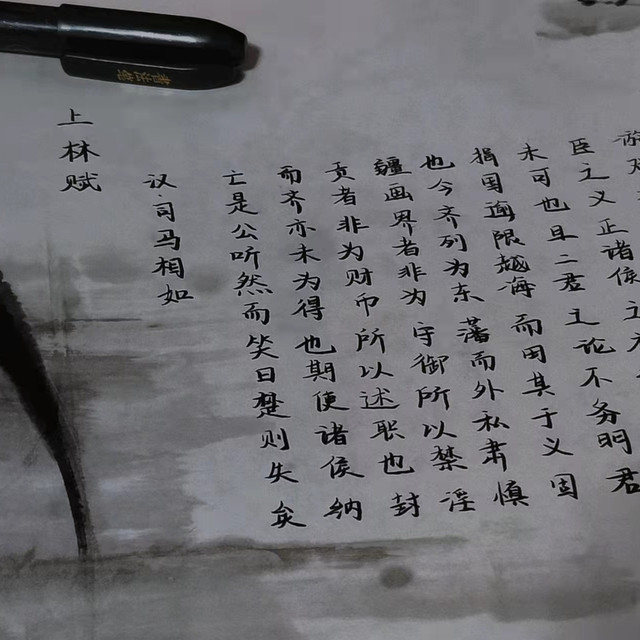 上林赋
汉司马相如
亡是公听然而笑曰楚则失矣
而齐亦未为得也期使诸侯纳
贡者非为财币所以述职也封
疆画界者非为守御所以禁淫
也今齐列为东藩而外私肃慎
捐国逾限越海而田其于义固
未可也且二君之论不务明君
臣之义正诸侯之